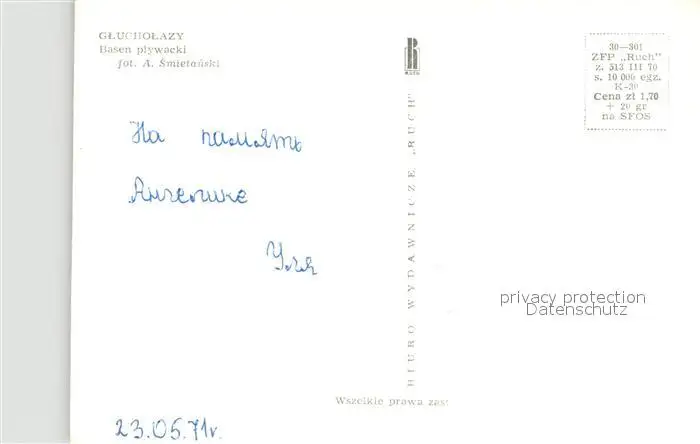 GŁUCHOŁAZY
Basen pływacki
fot. A. Śmietański
30—301
ZFP „Ruch”
z. 513 III 70
s. 10 000 egz.
K-30
Cena zł 1,70
+ 20 gr
na SFOS
На память
Анжелике
BIURO WYDAWNICZE „RUCH”
privacy protection
Datenschutz
Wszelkie prawa zas
23.05.71r.